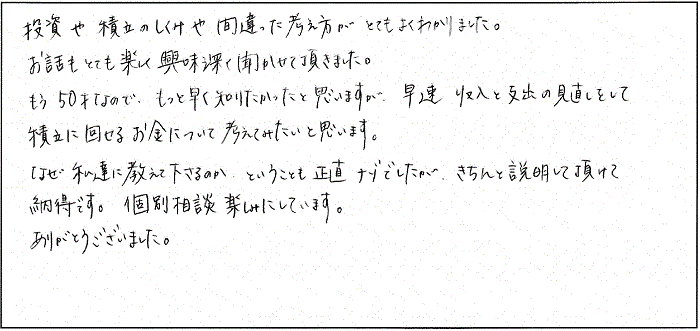 投資や積立のしくみや間違った考え方がとてもよくわかりました。
お話もとても楽しく興味深く聞かせて頂きました。
もう50才なので、もっと早く知りたかったと思いますが、早速収入と支出の見直しをして
積立に回せるお金について考えてみたいと思います。
なぜ私達に教えて下さるのか、ということも正直ナゾでしたが、きちんと説明して頂けて
納得です。個別相談楽しみにしています。
ありがとうございました。